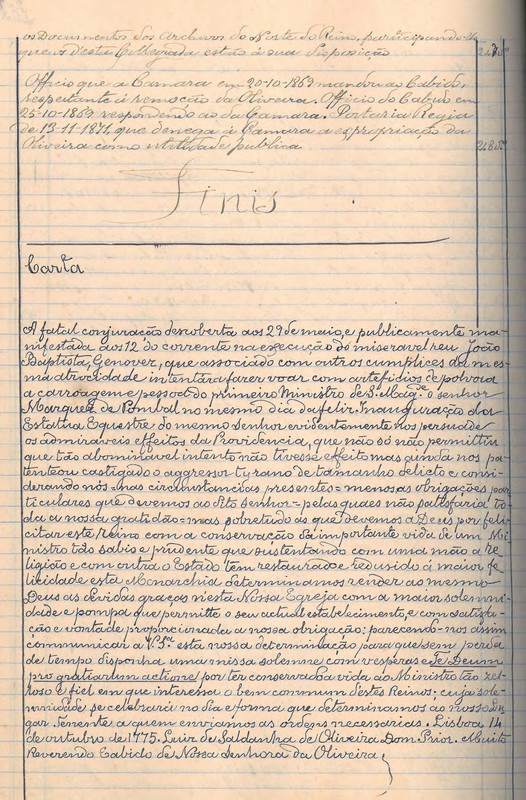 os Documentos dos Archivos do Norte do Reino, participando-lhe
que os desta Collegiada estão á sua disposição
Officio que a Camara em 20-10-1863 mandou ao Cabido,
respeitante á remoção da Oliveira. Officio do Cabido em
25-10-1863 respondendo ao da Camara. Portaria Regia
de 13-11-1871, que denega á Camara a expropriação da
Oliveira como utilidade publica
Finis
Carta
A fatal conjuração descoberta aos 29 de maio, e publicamente ma-
nifestada aos 12 do corrente na execução do miseravel reu João
Baptista, Genovez, que associado com outros cumplices da mes-
ma atrocidade intentára fazer voar com artefidios de polvora
a carroagem e pessoa do primeiro Ministro de S. Mag.de o senhor
Marquez de Pombal no mesmo dia da feliz Inauguração da
Estatua Equestre do mesmo Senhor evidentemente nos persuade
os admiraveis effeitos da Providencia, que não só não permittiu
que tão abominavel intento não tivesse effeito mas ainda nos pa-
tenteou castigado o aggressor tyrano de tamanho delicto e consi-
derando nós nas circumstancias presentes = menos as obrigações par-
ticulares que devemos ao dito Senhor = pelas quaes não satisfaria to-
da a nossa gratidão = mas sobretudo as que devemos a Deus por feli-
citar este Reino com a conservação da importante vida de um Mi-
nistro tão sabio e prudente que sustentando com uma mão a re-
ligião e com outra o Estado tem restaurado e reduzido á maior fe-
licidade esta Monarchia determinamos render ao mesmo
Deus as devidas graças n'esta Nossa Egreja com a maior solemni-
dade e pompa que permitte o seu actual estabelecimento, e com satisfa-
ção e vontade proporcionada a nossa obrigação: parecendo-nos assim
communicar a V. S.as esta nossa determinação para que sem perda
de tempo disponha uma missa solemne com vesperas e Te Deum
pro gratiarum actione, por ter conservado a vida ao Ministro tão zel-
loso e fiel em que interessa o bem commum destes Reinos: cuja solem-
nidade se celebrará no dia e forma que determinamos ao nosso Lu-
gar-Tenente a quem enviamos as ordens necessarias. Lisboa 14
de outubro de 1775. Luiz de Saldanha de Oliveira Dom Prior. Muito
Reverendo Cabido de Nossa Senhora da Oliveira.